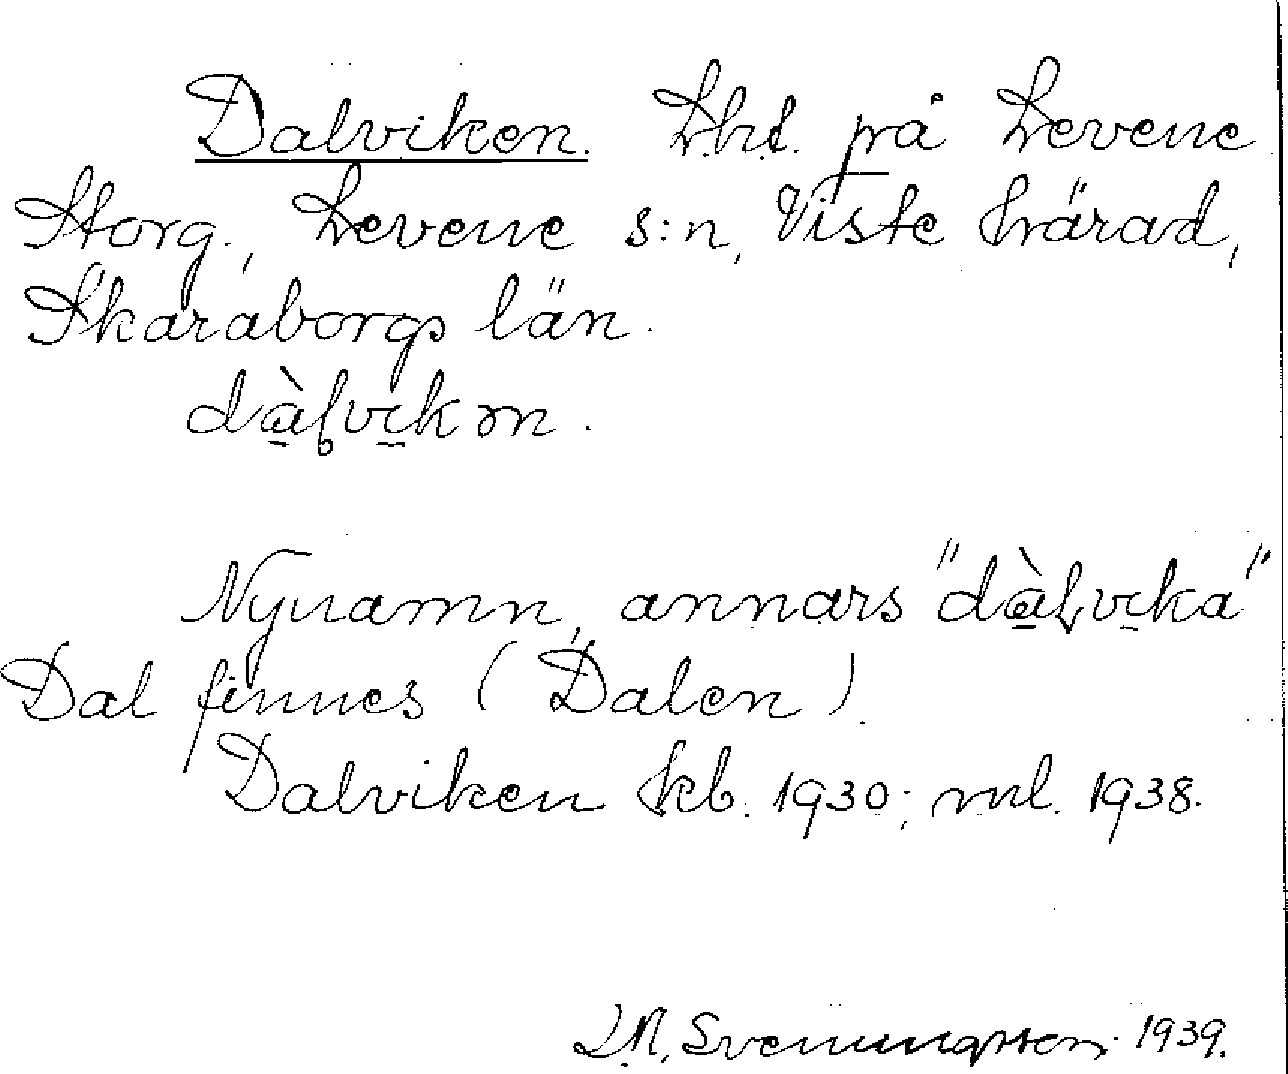 Dalviken. Lht. på Levene
Storg., Levene s:n, Viste härad,
Skaraborgs län.
dàlvikən.
Nynamn, annars "dàlvika"
Dal finnes (Dalen).
Dalviken kb. 1930; ml. 1938.
Svenungsson 1939.